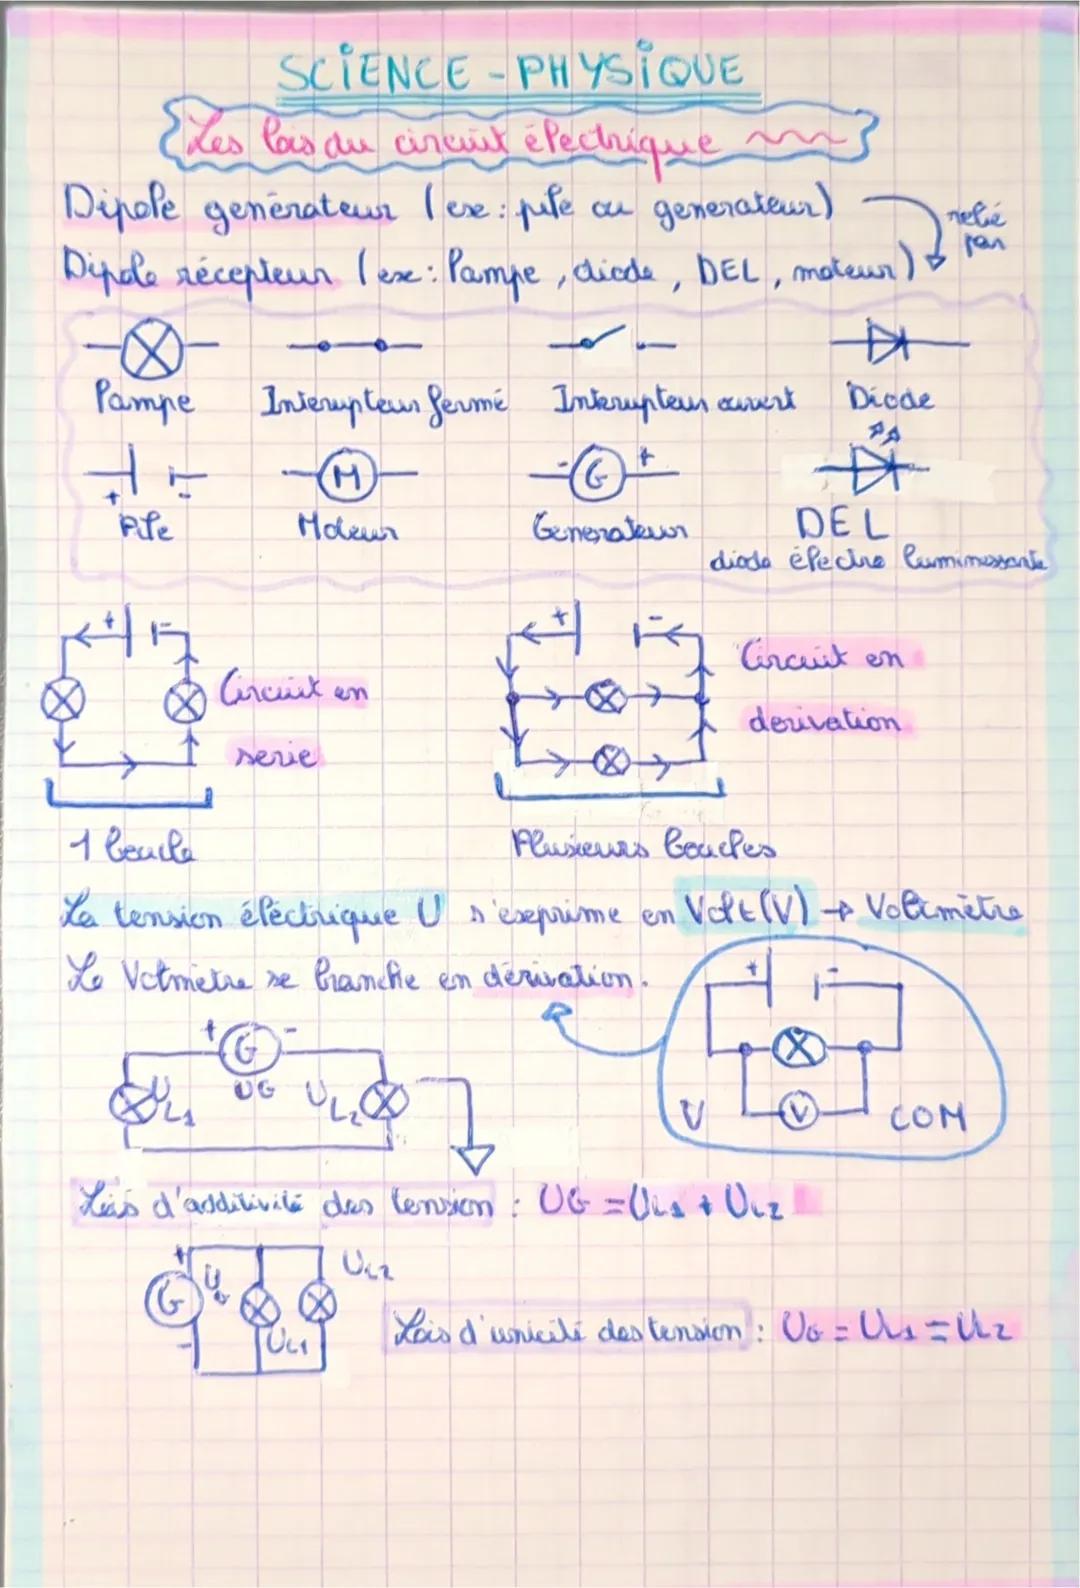 SCIENCE - PHYSIQUE
Les lois du circuit électrique
Dipole genérateur (ex: pile ou generateur)
relié par
Dipole récepteur (ex: Lampe, diode, DEL, moteur)
Lampe Interupteur fermé Interupteur ouvert Diode
+ - M - G +
Pile Moteur Generateur DEL
diode électro luminessante
+ - + -
Circuit en serie
Circuit en derivation
1 boucle Plusieurs boucles
La tension éléctrique U s'exprime en Volt (V) → Voltmètre
Le Votmetre se branche en dérivation.
+ -
V V COM
+ G -
UL1 UG UL2
Lois d'additivité des tension : UG = UL1 + UL2
+ G - UG UL1 UL2
Lois d'unicité des tension : UG = UL1 = UL2